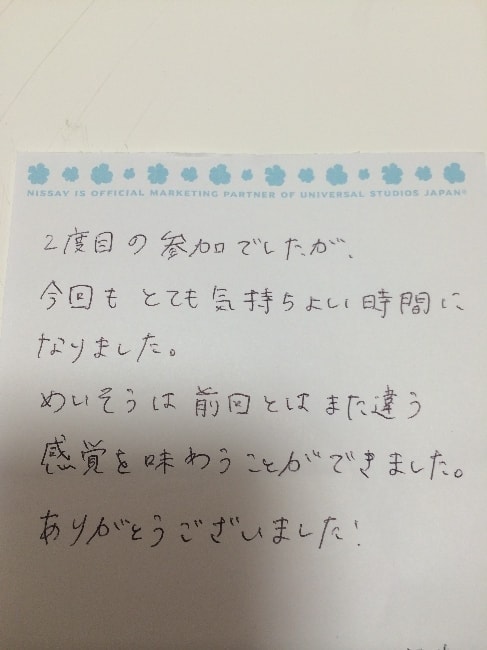 NISSAY IS OFFICIAL MARKETING PARTNER OF UNIVERSAL STUDIOS JAPAN®
2度目の参加でしたが、
今回もとても気持ちよい時間に
なりました。
めいそうは前回とはまた違う
感覚を味わうことができました。
ありがとうございました!